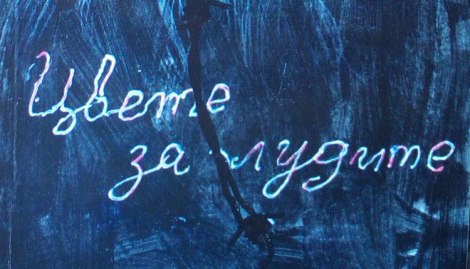 Цвете
за лудите